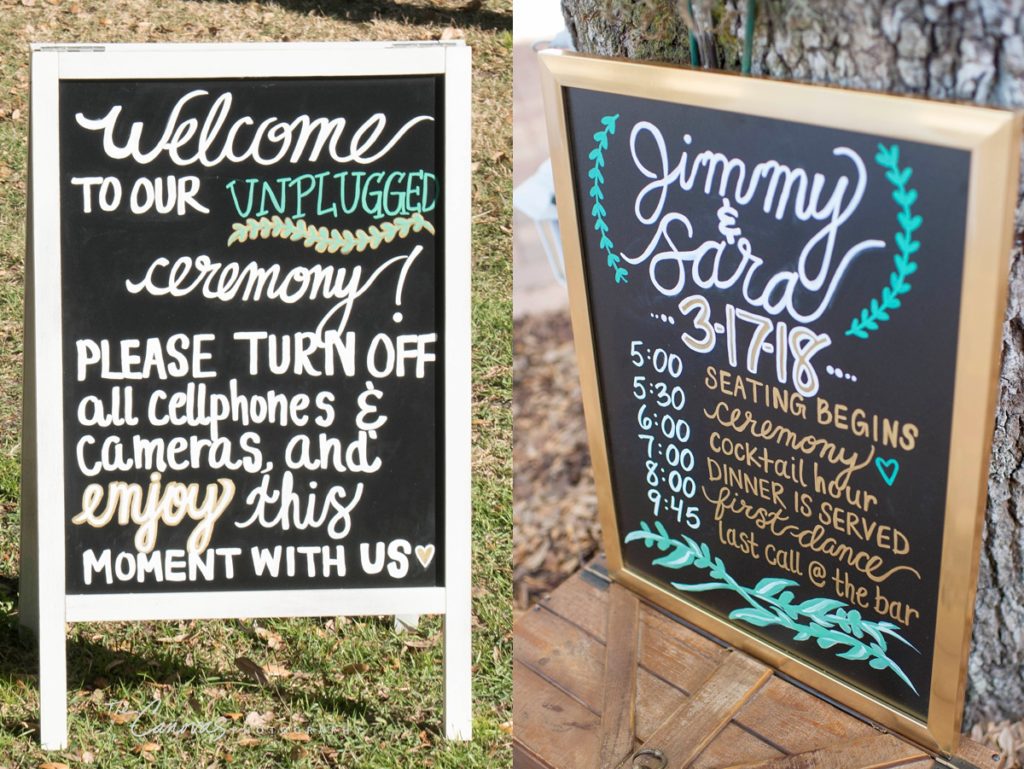 Welcome
TO OUR UNPLUGGED
ceremony!
PLEASE TURN OFF
all cellphones &
cameras, and
enjoy this
MOMENT WITH US
Jimmy
&
Sara
3-17-18
5:00 SEATING BEGINS
5:30 ceremony
6:00 cocktail hour
7:00 DINNER IS SERVED
8:00 first dance
9:45 last call @ the bar